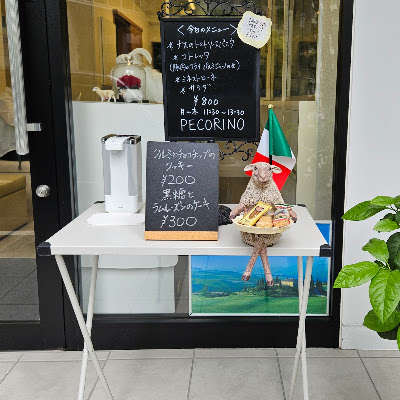 <今日のメニュー>
*ナスのトマトソースパスタ
*コトレッタ
*ミネストローネ
*サラダ
¥800
月〜木 11:30〜13:30
PECORINO
クルミとチョコチップの
クッキー
¥200
黒糖と
ラムレーズンのケーキ
¥300